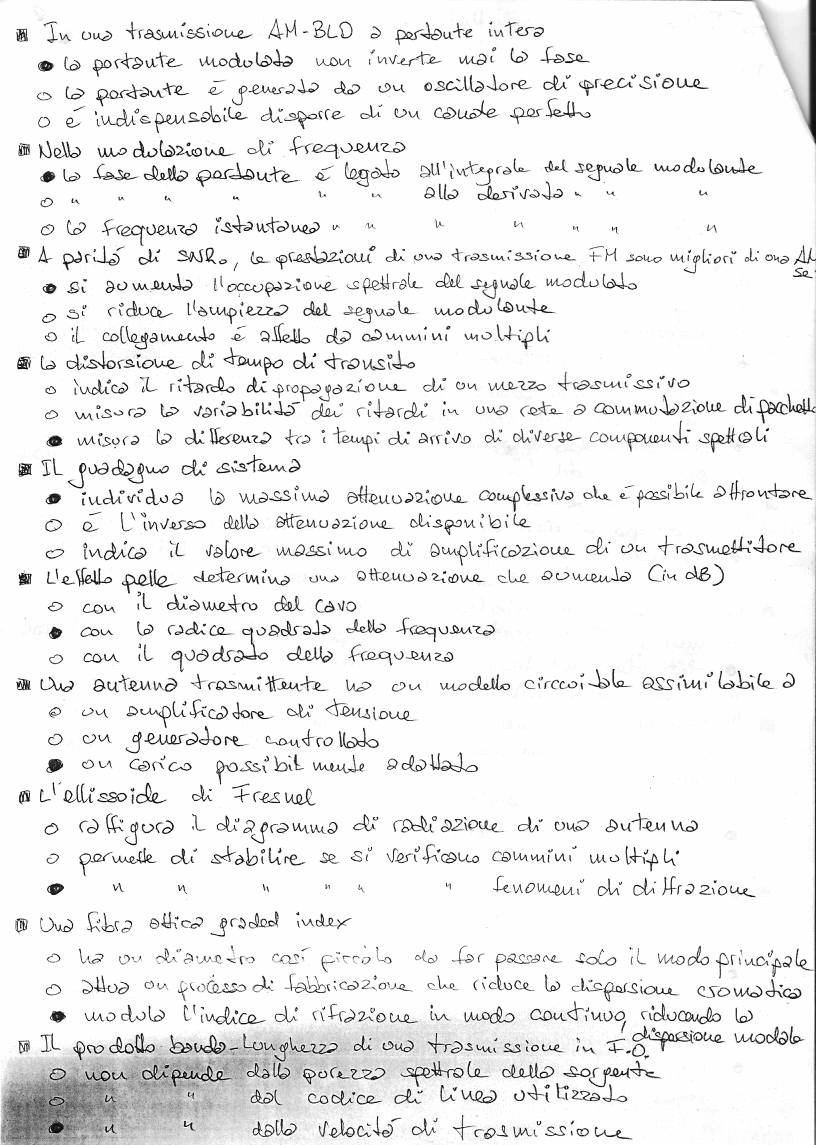 In una trasmissione AM-BLD a portante intera
● la portante modulata non inverte mai la fase
○ la portante è generata da un oscillatore di precisione
○ è indispensabile disporre di un canale perfetto
Nella modulazione di frequenza
● la fase della portante è legata all'integrale del segnale modulante
○ " " " " " " alla derivata " " "
○ la frequenza istantanea " " " " " "
A parità di SNR₀, le prestazioni di una trasmissione FM sono migliori di una AM se
● si aumenta l'occupazione spettrale del segnale modulato
○ si riduce l'ampiezza del segnale modulante
○ il collegamento è affetto da cammini multipli
La distorsione di tempo di transito
○ indica il ritardo di propagazione di un mezzo trasmissivo
○ misura la variabilità dei ritardi in una rete a commutazione di pacchetto
● misura la differenza tra i tempi di arrivo di diverse componenti spettrali
Il guadagno di sistema
● individua la massima attenuazione complessiva che è possibile affrontare
○ è l'inverso della attenuazione disponibile
○ indica il valore massimo di amplificazione di un trasmettitore
L'effetto pelle determina una attenuazione che aumenta (in dB)
○ con il diametro del cavo
● con la radice quadrata della frequenza
○ con il quadrato della frequenza
Una antenna trasmittente ha un modello circuitale assimilabile a
○ un amplificatore di tensione
○ un generatore controllato
● un carico possibilmente adattato
L'ellissoide di Fresnel
○ raffigura il diagramma di radiazione di una antenna
○ permette di stabilire se si verificano cammini multipli
● " " " " " " fenomeni di diffrazione
Una fibra ottica graded index
○ ha un diametro così piccolo da far passare solo il modo principale
○ attua un processo di fabbricazione che riduce la dispersione cromatica
● modula l'indice di rifrazione in modo continuo, riducendo la dispersione modale
Il prodotto banda-lunghezza di una trasmissione in F.O.
○ non dipende dalla purezza spettrale della sorgente
○ " " dal codice di linea utilizzato
● " " dalla velocità di trasmissione